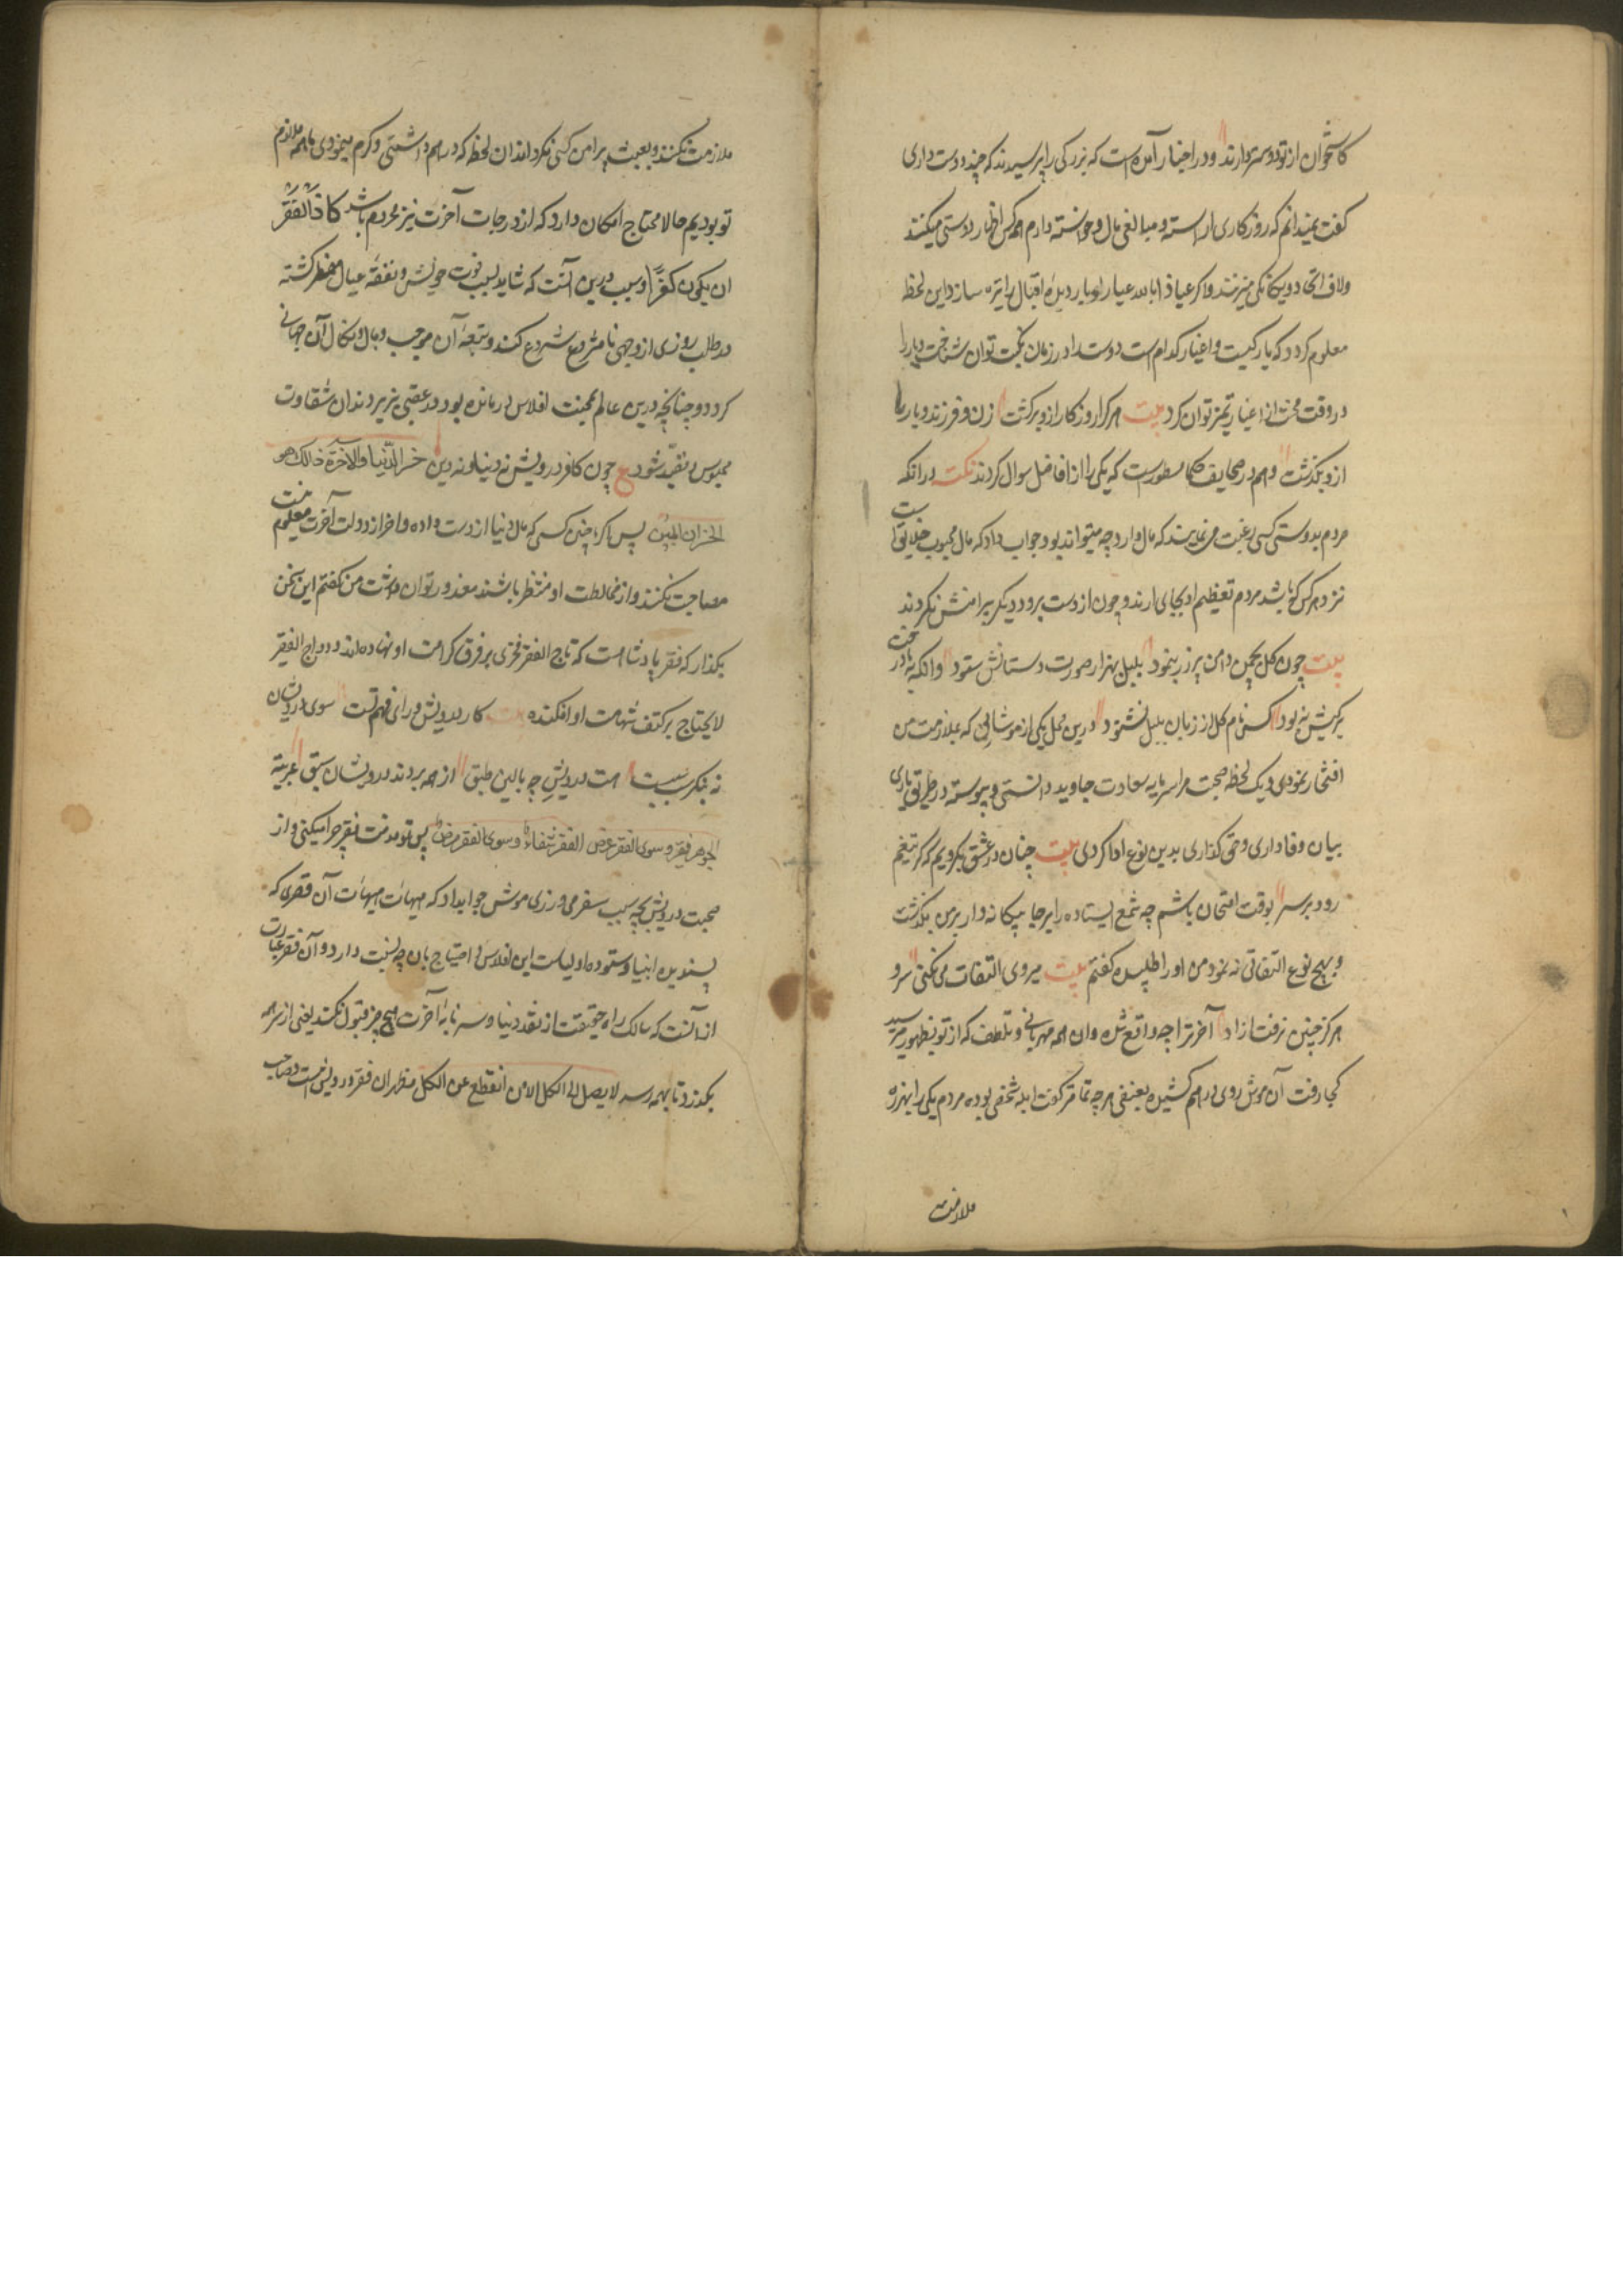 کاستخوان از تو دوستر دارند و در اخبار آمده است که بزرکی را پرسیدند که چند دوست داری
کفت نمیدانم که روزکاری اراسته و مبالغی مال و خواسته دارم همه کس اظهار دوستی میکنند
ولاف اتحاد و یکانکی میزنند و اکر عیاذا بالله غبار ادبار دیدۀ اقبال را تیره سازد این لحظه
معلوم کردد که یار کیست و اغیار کدام است دوست را در زمان نکبت توان شناخت و یار را
در وقت محنت از اغیار تمیز توان کرد بیت هر کرا روزکار ازو برکشت زن و فرزند و یار با
ازو بکذشت و هم در صحایف حکما مسطورست که یکی را از افاضل سوال کردند نکته در انکه
مردم بدوستی کسی رغبت می نمایند که مال دارد چه میتواند بود جواب داد که مال محبوب خلایق است
نزد هر کس که باشد مردم تعظیم او بجای ارند و چون از دست برود دیکر پیرامنش نکردند
بیت چون کل بچمن دامن پر زر بنمود بلبل بهزار صورت دستانش ستود وانکه که بباد رفت
برکش نیز بود کس نام کل از زبان بلبل نشنود درین محل یکی از موشانی که بملازمت من
افتخار نمودی و یک لحظه صحبت مرا سرمایه سعادت جاوید دانستی و پیوسته در طریق یاری
بیان وفاداری و حق کذاری بدین نوع ادا کردی بیت چنان در عشق یکرویم که کر تیغم
رود بر سر بوقت امتحان باشم چو شمع ایستاده پا برجا بیکانه وار بر من بکذشت
و بهیچ نوع التفاتی نه نمود من او را طلبیده کفتم بیت میروی التفات می نکنی سرو
هرکز چنین نرفت ازاد آخر ترا چه واقع شده وان همه مهربانی و تلطف که از تو بظهور میرسید
کجا رفت آن موش روی درهم کشیده بعنفی هر چه تمامتر کفت ابله شخصی بوده مردم یکی را بهرزه
ملازمت
ملازمت نکنند و بعبث پیرامن کسی نکردند ان لحظه که درهم داشتی و کرم مینمودی ما همه ملازم
تو بودیم حالا محتاج امکان دارد که از درجات آخرت نیز محروم باشد کاد الفقر
ان یکون کفرا و سبب درین آنست که شاید بسبب قوت خویش و نفقه عیال مضطر کشته
در طلب روزی از وجهی نامشروع شروع کند و تبعه آن موجب وبال و نکال آن جهانی
کردد و چنانچه درین عالم بمحنت افلاس درمانده بود در عقبی نیز بزندان شقاوت
محبوس و مقید شود ع چون کافر درویش نه دنیا و نه دین خسر الدنیا والآخرة ذالک هو
الخسران المبین پس باکر چنین کسی که مال دنیا از دست داده و اخر از دولت آخرت معلوم نیست
مصاحبت نکنند و از مخالطت او متنفر باشند معذور توان داشت من کفتم این سخن
بکذار که فقیر پادشا است که تاج الفقر فخری بر فرق کرامت او نهاده اند و دواج الفقیر
لا یحتاج بر کتف شهامت او افکنده بیت کار درویش ورای فهم تست سوی درویشان
به منکر سست سست درویش چه بالین طبق از همه بردند درویشان سبق عربیة
الجوهر فقر و سوی الفقر عرض الفقر شفاء و سوی الفقر مرض پس تو مذمت فقر چرا میکنی و از
صحبت درویش بچه سبب سفر می ورزی موش جواب داد که هیهات هیهات آن فقری که
پسندیده انبیا و ستوده اولیاست این افلاس و احتیاج بان چه نسبت دارد و آن فقر عبارت
از آنست که سالک راه حقیقت از نقد دنیا و سرمایه آخرت هیچ چیز قبول نکند یعنی از سر همه
بکذرد تا بهمه رسد لا یصل الی الکل الا من انقطع عن الکل مظهر ان فقر درویش است و صاحب